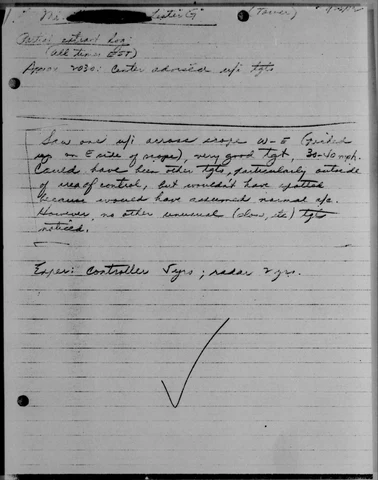 1. Mr. (Tower)
Partial extract log:
(all times EST)
Approx 2030: Center advised u/i tgts
Saw one u/i across scope W-E (picked
up on E side of scope), very good tgt, 30-40 mph.
Could have been other tgts, particularly outside
of area of control, but wouldn't have spotted
because would have assumed normal a/c.
However, no other unusual (slow, etc) tgts
noticed.
Exper: Controller 5 yrs; radar 2 yrs.